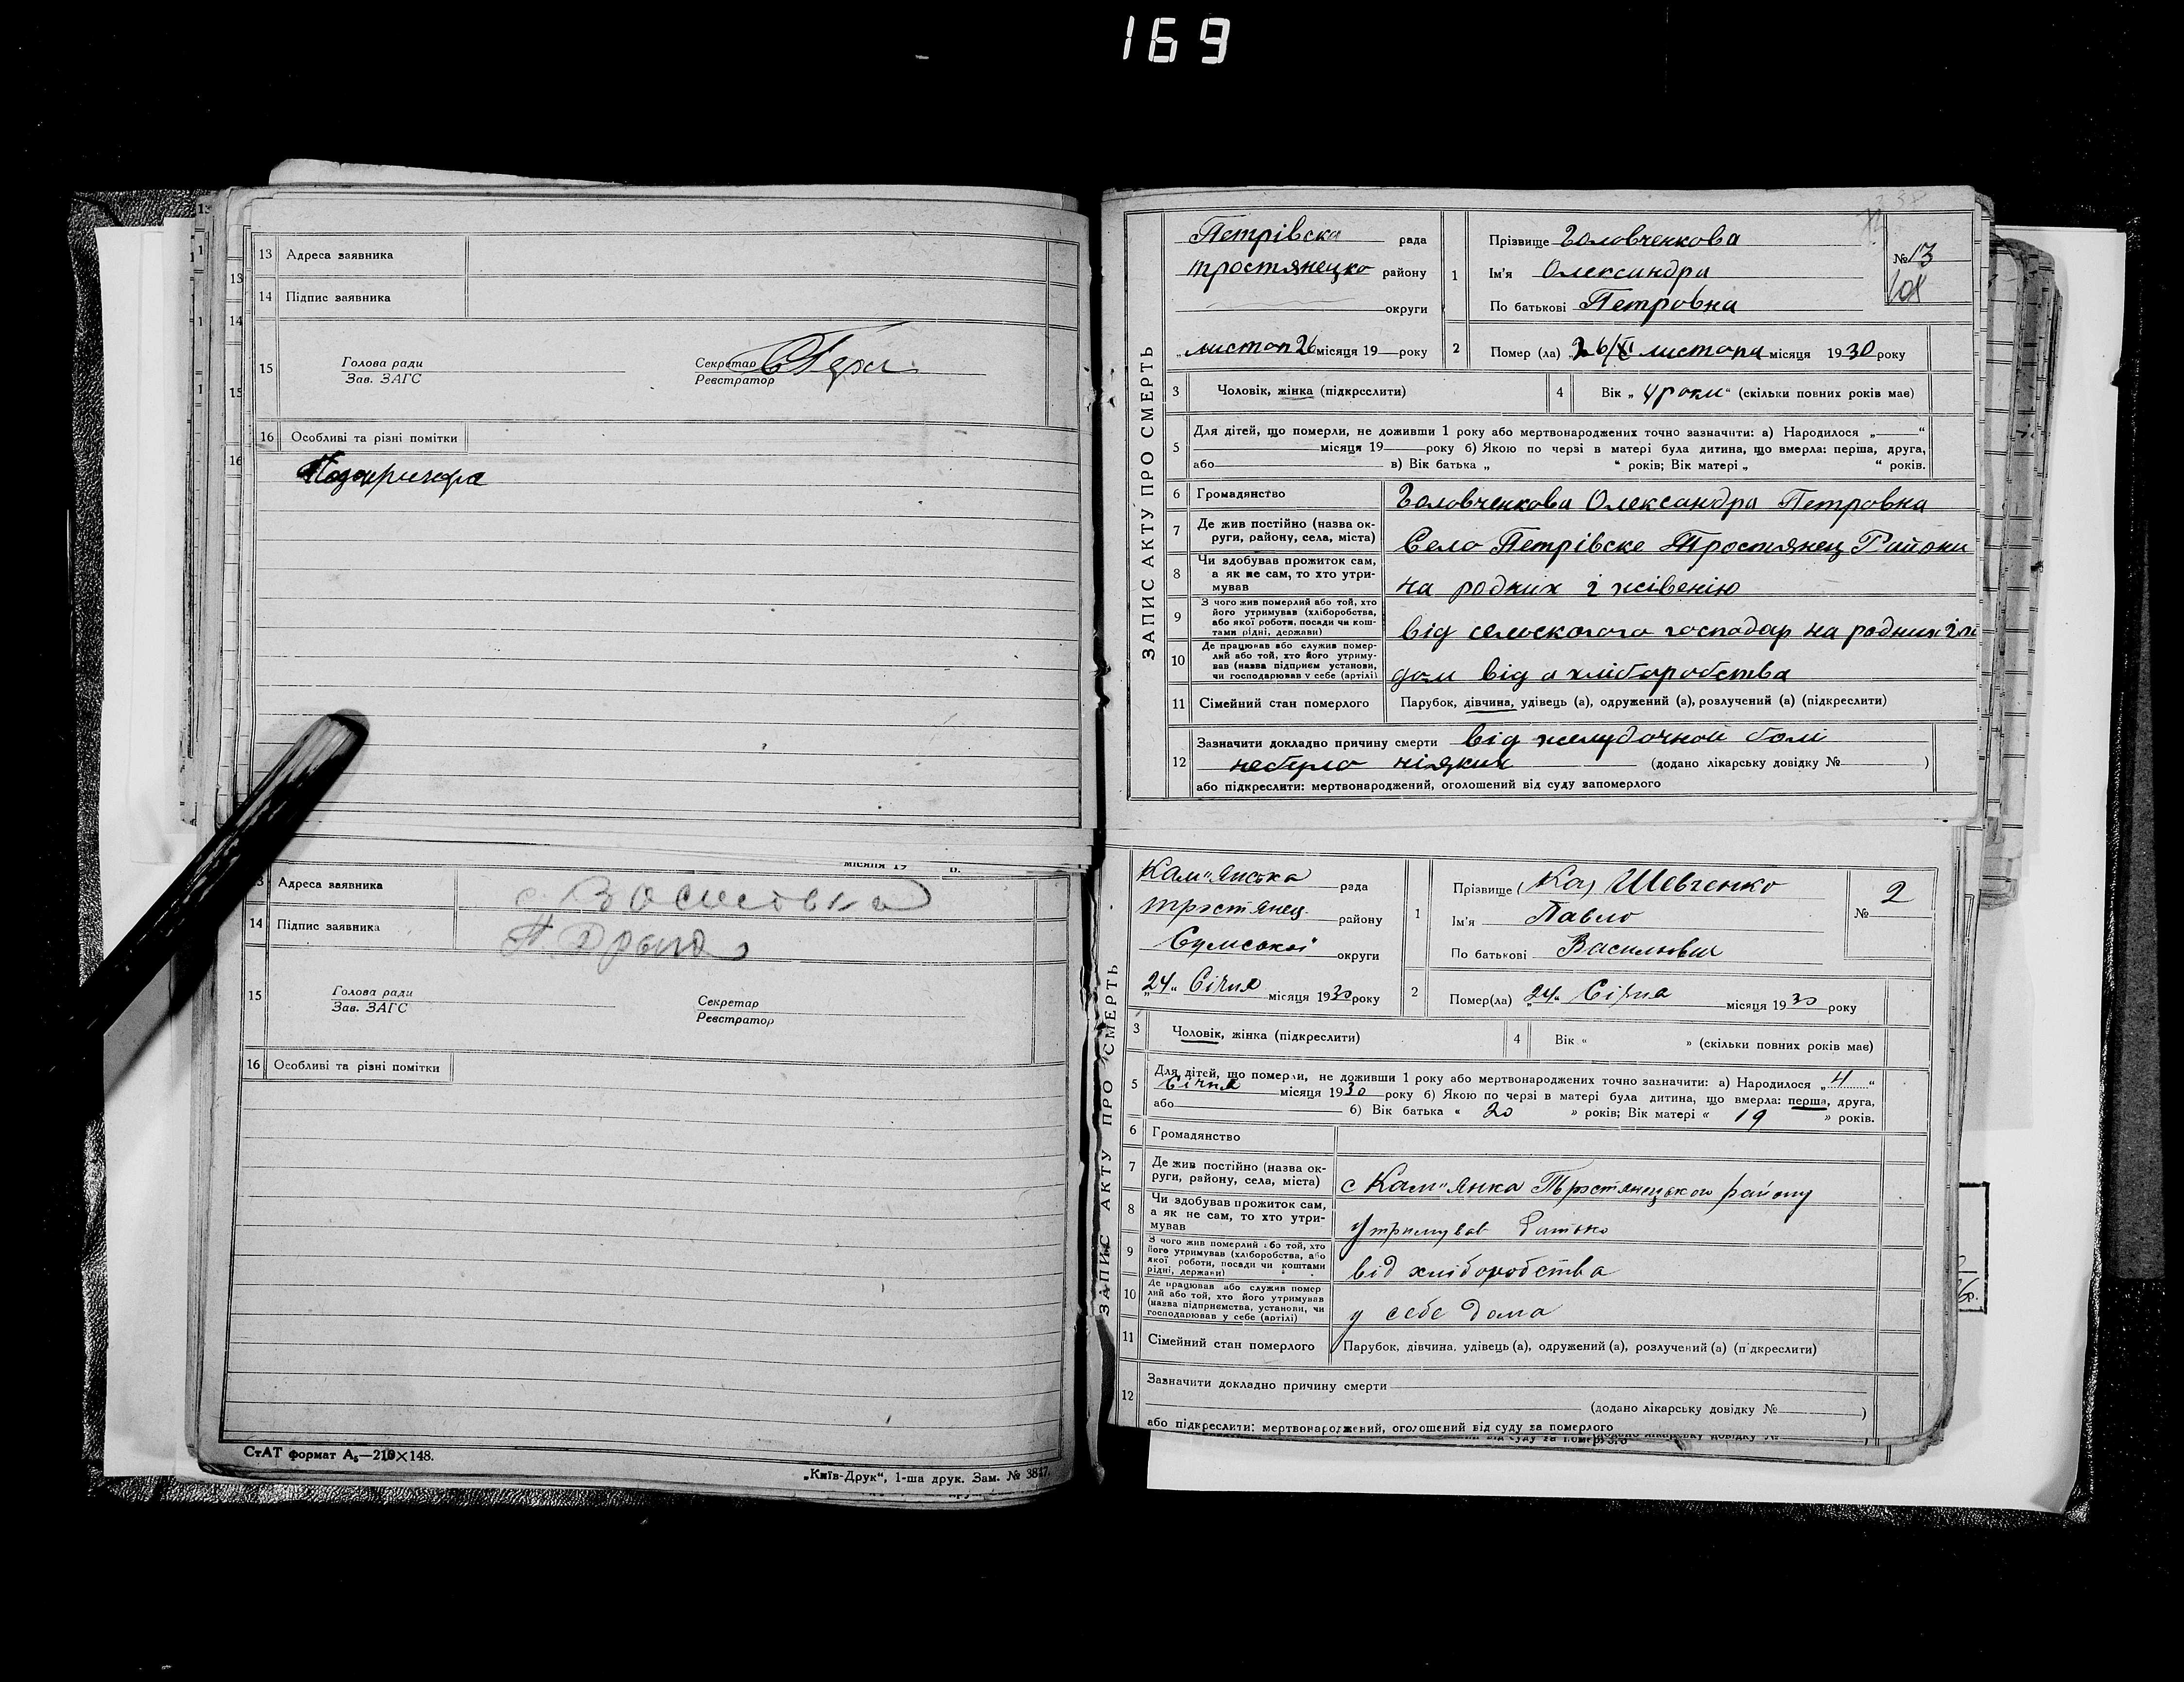 169
13 Адреса заявника
14 Підпис заявника
15 Голова ради
Зав. ЗАГС
Секретар
Реєстратор
16 Особливі та різні помітки
13 Адреса заявника
14 Підпис заявника
П.
15 Голова ради
Зав. ЗАГС
Секретар
Реєстратор
16 Особливі та різні помітки
СтАТ формат А₅—210×148.
„Київ-Друк“, 1-ша друк. Зам. № 3847.
ЗАПИС АКТУ ПРО СМЕРТЬ
Петрівска рада
тростянецко району
округи
„листоп 26 місяця 19 року
1 Прізвище Головченкова
Ім'я Олександра
По батькові Петровна
№ 13
2 Помер (ла) „26/XI листопа місяця 1930 року
3 Чоловік, жінка (підкреслити)
4 Вік „4 роки“ (скільки повних років має)
5 Для дітей, що померли, не доживши 1 року або мертвонароджених точно зазначити: а) Народилося „ “
місяця 19 року б) Якою по черзі в матері була дитина, що вмерла: перша, друга,
або в) Вік батька „ “ років; Вік матері „ “ років.
6 Громадянство Головченкова Олександра Петровна
7 Де жив постійно (назва ок-
руги, району, села, міста) Село Петрівске Тростянец Районы
8 Чи здобував прожиток сам,
а як не сам, то хто утри-
мував на родних і жівенію
9 З чого жив померлий або той, хто
його утримував (хліборобства,
або якої роботи, посади чи кош-
тами рідні, держави) від селоского господар на родних
10 Де працював або служив помер-
лий або той, хто його утриму-
вав (назва підприєм установи,
чи господарював у себе (артілі) дом від а хліборобства
11 Сімейний стан померлого Парубок, дівчина, удівець (а), одружений (а), розлучений (а) (підкреслити)
12 Зазначити докладно причину смерти від желудочной болі
небуло ніяких (додано лікарську довідку № )
або підкреслити: мертвонароджений, оголошений від суду запомерлого
ЗАПИС АКТУ ПРО СМЕРТЬ
Кам"янська рада
тростянец. району
Сумської округи
„24“ Січня місяця 1930 року
1 Прізвище (Ка) Шевченко
Ім'я Павло
По батькові Васильович
№ 2
2 Помер(ла) „24“ Січня місяця 1930 року
3 Чоловік, жінка (підкреслити)
4 Вік « » (скільки повних років має)
5 Для дітей, що померли, не доживши 1 року або мертвонароджених точно зазначити: а) Народилося „4“
Січня місяця 1930 року б) Якою по черзі в матері була дитина, що вмерла: перша, друга,
або б) Вік батька « 20 » років; Вік матері « 19 » років.
6 Громадянство
7 Де жив постійно (назва ок-
руги, району, села, міста) с Кам"янка Тростянецького району
8 Чи здобував прожиток сам,
а як не сам, то хто утри-
мував утримував батько
9 З чого жив померлий або той, хто
його утримував (хліборобства, або
якої роботи, посади чи коштами
рідні, держави) від хліборобства
10 Де працював або служив помер
лий або той, хто його утримував
(назва підприємства, установи, чи
господарював у себе (артілі) у себе дома
11 Сімейний стан померлого Парубок, дівчина, удівець (а), одружений (а), розлучений (а) (підкреслити)
12 Зазначити докладно причину смерти
(додано лікарську довідку № )
або підкреслити: мертвонароджений, оголошений від суду за померлого